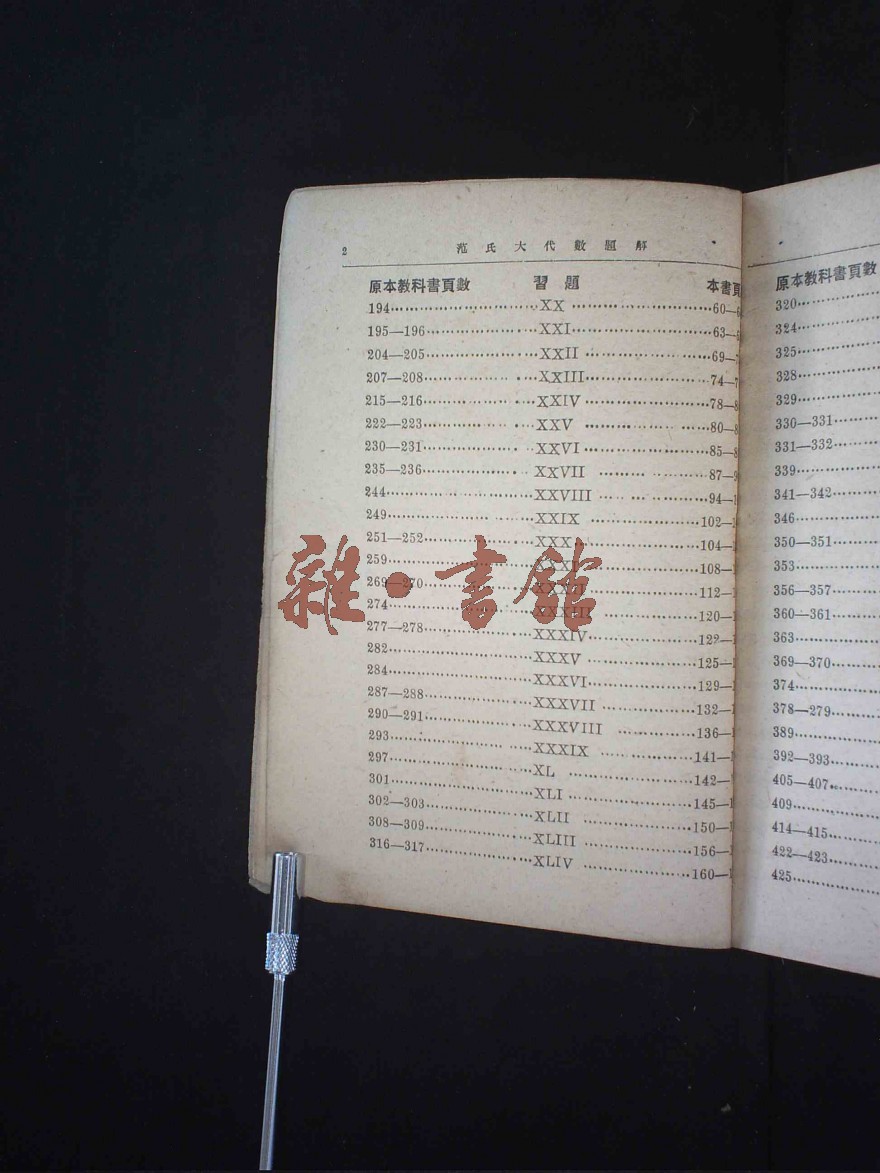 2 范氏大代數題解
原本教科書頁數 習題 本書頁
194 XX 60—
195—196 XXI 63—
204—205 XXII 69—
207—208 XXIII 74—
215—216 XXIV 78—
222—223 XXV 80—
230—231 XXVI 85—
235—236 XXVII 87—
244 XXVIII 94—
249 XXIX 102—
251—252 XXX 104—
259 108—
269—270 112—
274 XXXIII 120—
277—278 XXXIV 122—
282 XXXV 125—
284 XXXVI 129—
287—288 XXXVII 132—
290—291 XXXVIII 136—
293 XXXIX 141—
297 XL 142—
301 XLI 145—
302—303 XLII 150—
308—309 XLIII 156—
316—317 XLIV 160—
雜·書館
原本教科書頁數
320
324
325
328
329
330—331
331—332
339
341—342
346
350—351
353
356—357
360—361
363
369—370
374
378—279
389
392—393
405—407
409
414—415
422—423
425